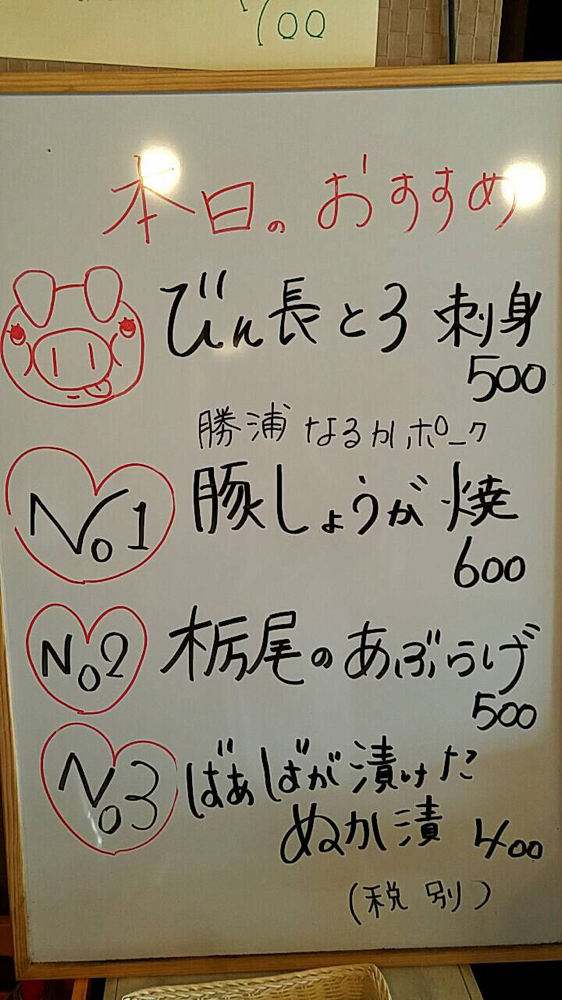 700
本日のおすすめ
びん長とろ 刺身
500
勝浦 なるかポーク
No1 豚しょうが焼
600
No2 栃尾のあぶらげ
500
No3 ばあばが漬けた
ぬか漬 400
(税別)